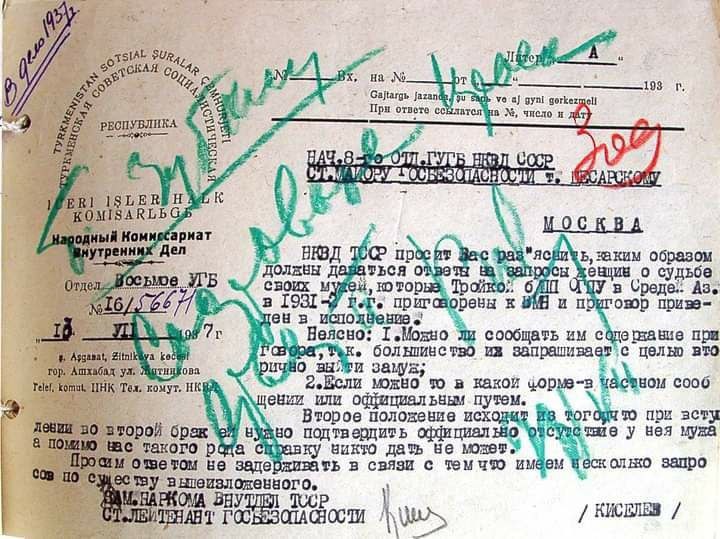 В дело 1937г
Литер „ А "
№ Вх. на № от 193 г.
Gajtargь jazanda, şu saпь ve aj gyni gөrkezmeli
При ответе ссылатся на №, число и дату
TYRKMENISTAN SOTSIAL ŞURALAR ÇEMHURIJETI
ТУРКМЕНСКАЯ СОВЕТСКАЯ СОЦИАЛИСТИЧЕСКАЯ
РЕСПУБЛИКА
IÇERI IŞLER HALK
KOMISARLЬGЬ
Народный Комиссариат
Внутренних Дел
Отдел Восьмое УГБ
№ 16/56671
„13 VII 1937 г.
ş. Aşgabat, Zitnikova kөcesi
гор. Ашхабад ул. Житникова
Telef. komut. IIHK Тел. комут. НКВД
НАЧ.8-го ОТД.ГУГБ НКВД СССР
СТ.МАЙОРУ ГОСБЕЗОПАСНОСТИ т. ЦЕСАРСКОМУ
МОСКВА
НКВД ТССР просит Вас раз"яснить,каким образом
должны даваться ответы на запросы женщин о судьбе
своих мужей,которые Тройкой б/ПП ОГПУ в Средн.Аз.
в 1931-2 г.г. приговорены к ВМН и приговор приве-
ден в исполнение.
Неясно: 1.Можно ли сообщать им содержание при
говора,т.к. большинство их запрашивает с целью вто
рично выйти замуж;
2.Если можно то в какой форме-в частном сооб
щении или официальным путем.
Второе положение исходит из того,что при всту
лении во второй брак ей нужно подтвердить официально отсутствие у нея мужа
а помимо нас такого рода справку никто дать не может.
Просим ответом не задерживать в связи с тем что имеем несколько запро
сов по существу вышеизложенного.
ЗАМ.НАРКОМА ВНУТДЕЛ ТССР
СТ.ЛЕЙТЕНАНТ ГОСБЕЗОПАСНОСТИ
/ КИСЕЛЕВ /